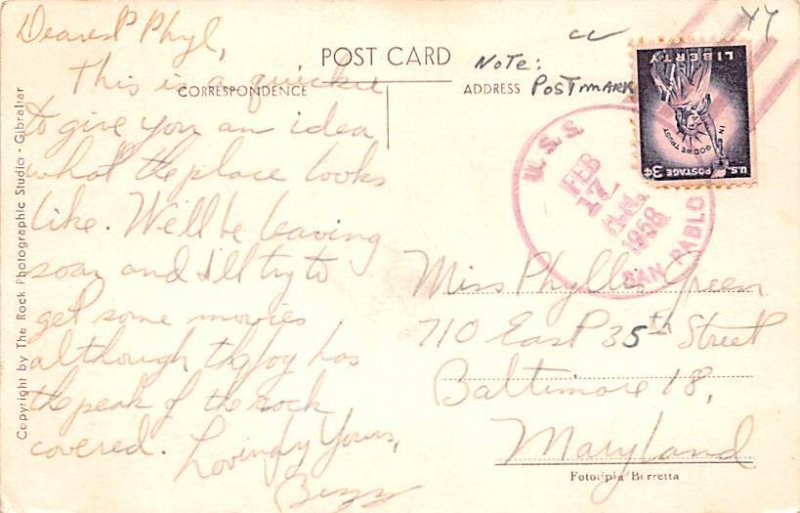 Dearest Phyl,
This is a quickie
to give you an idea
what the place looks
like. We'll be leaving
soon and I'll try to
get some movies
although the fog has
the peak of the rock
covered. Lovingly Yours,
POST CARD
CORRESPONDENCE
ADDRESS
NOTE:
POSTMARK
Copyright by The Rock Photographic Studio - Gibraltar
LIBERTY
IN GOD WE TRUST
U.S. POSTAGE 3¢
U.S.S. SAN PABLO
FEB
17
A.M.
1958
Miss Phyllis Green
710 East 35th Street
Baltimore 18,
Maryland
Fototipia Berretta